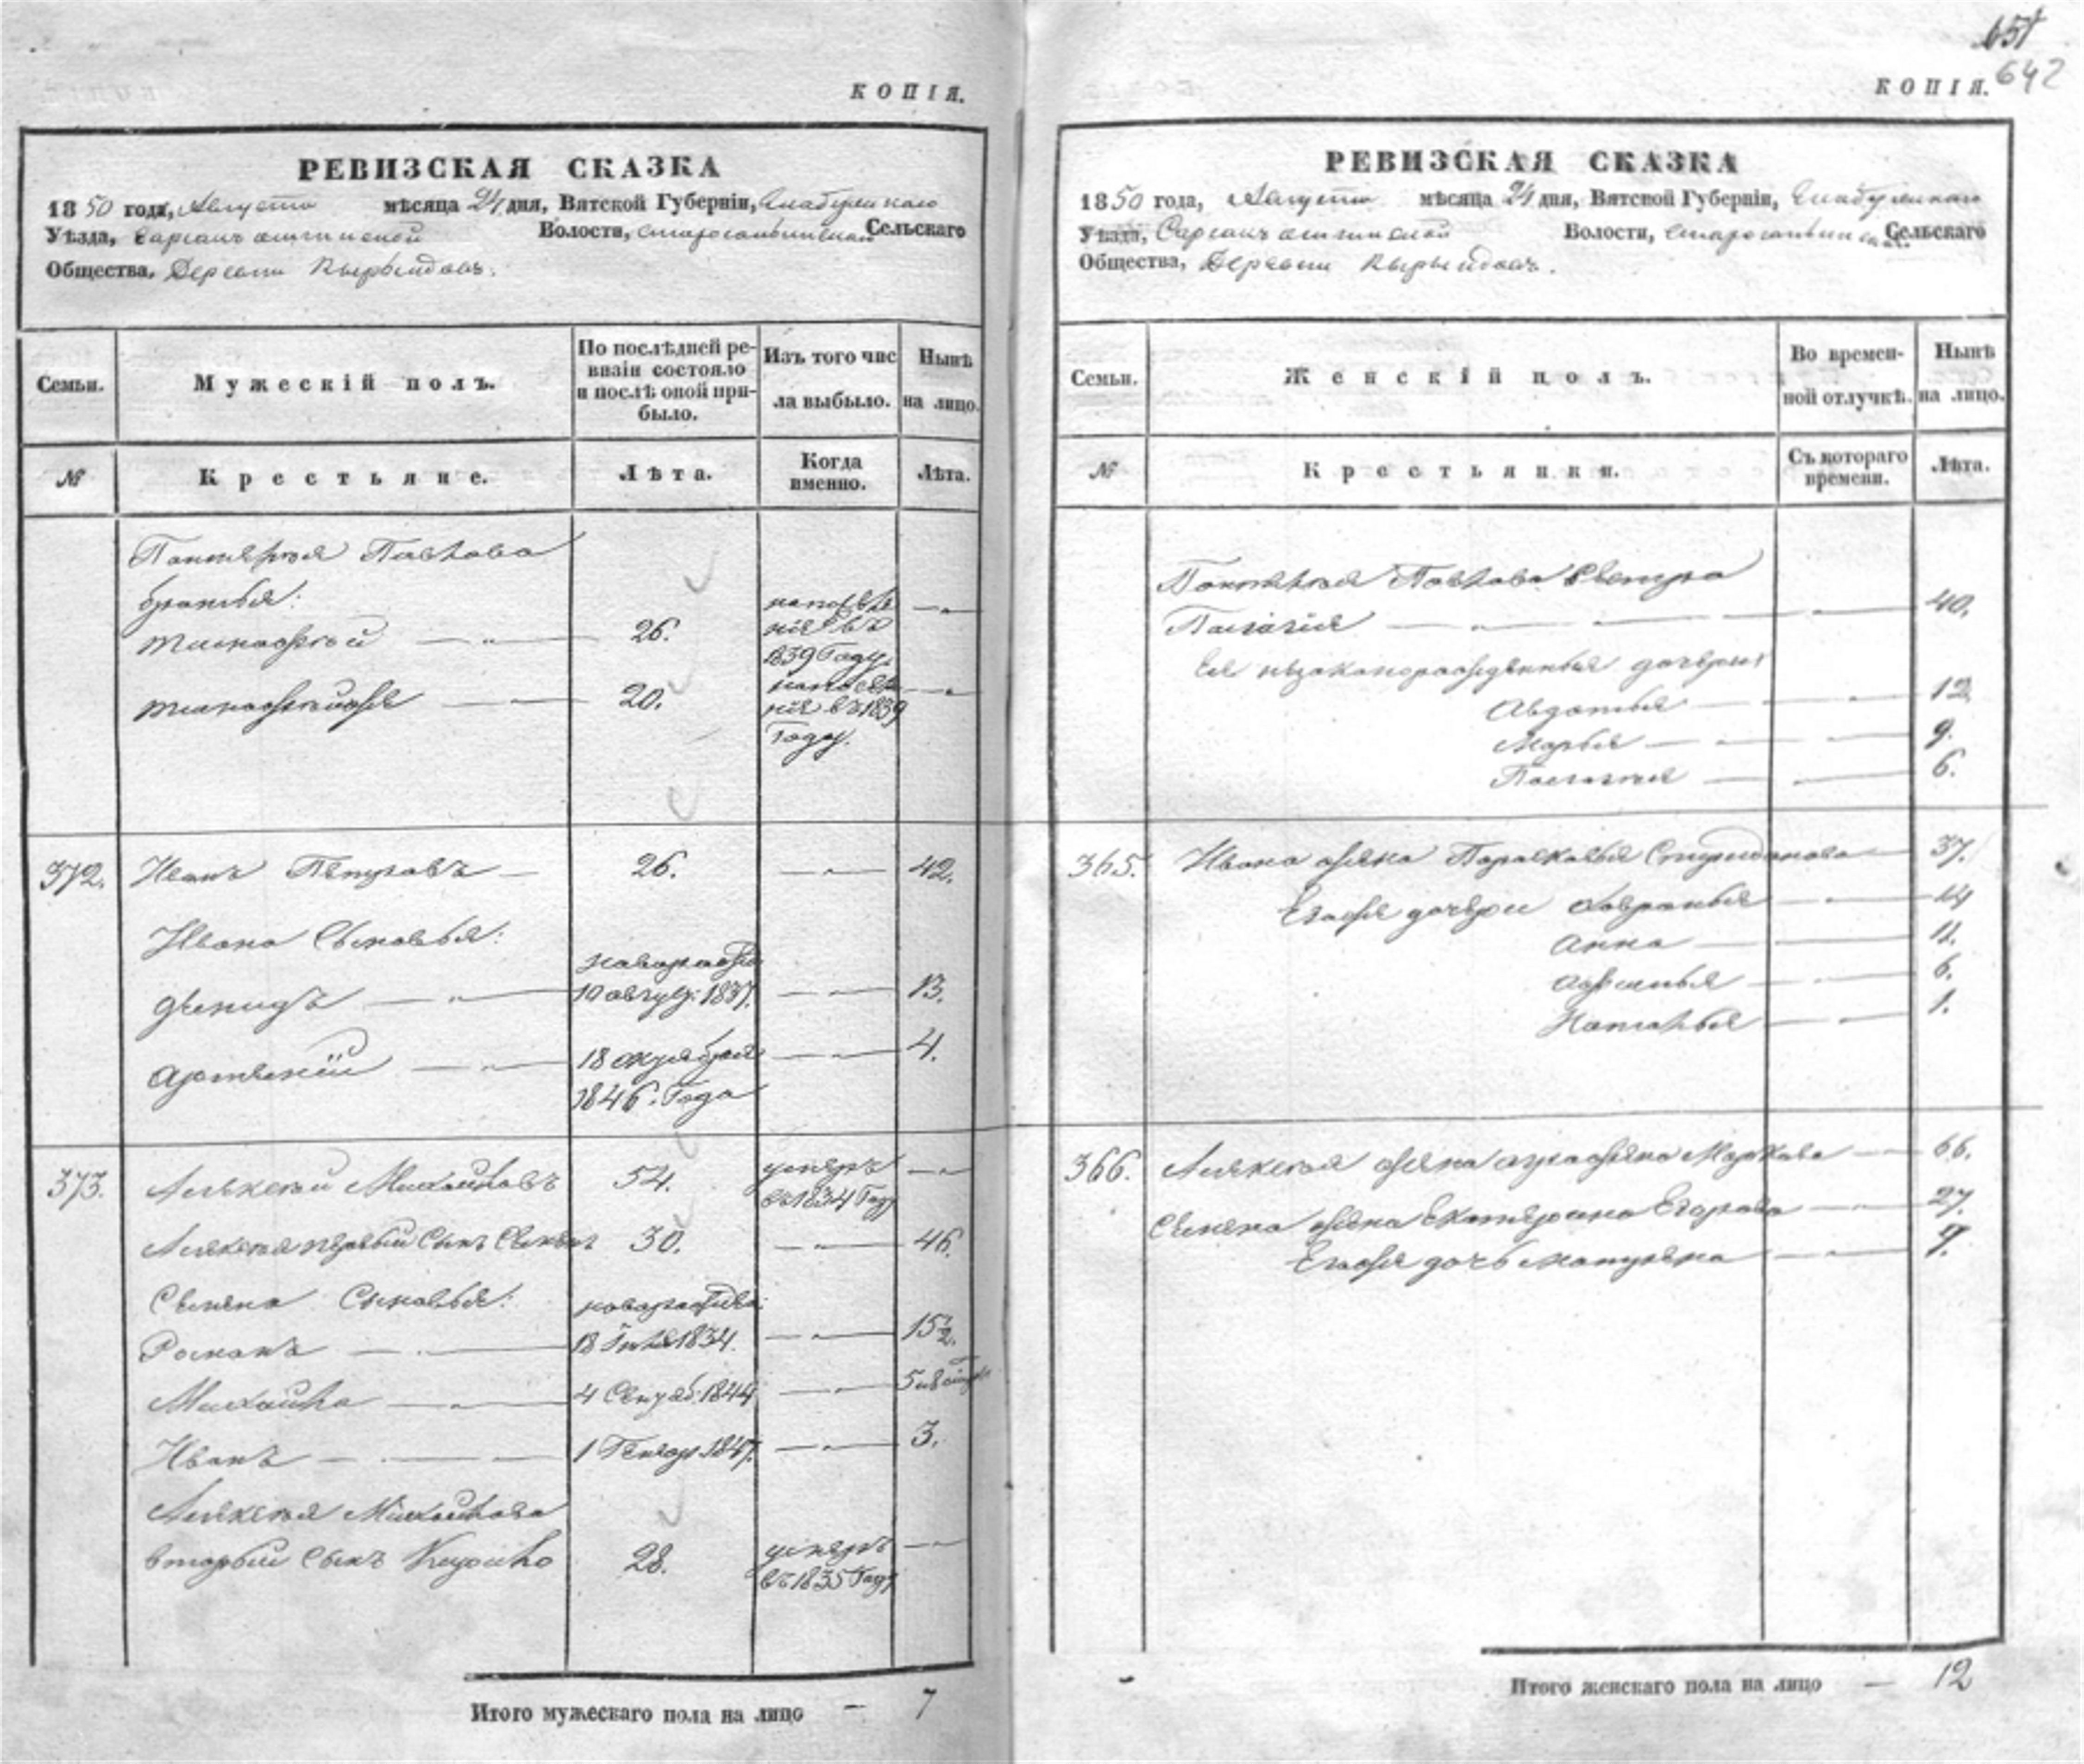 КОПІЯ.
РЕВИЗСКАЯ СКАЗКА
1850 года, Августа мѣсяца 24 дня, Вятской Губерніи, Елабужскаго
Уѣзда, Волости, Сельскаго
Общества, Деревни
Семьи.
Мужескій полъ.
По послѣдней ре-
визіи состояло
и послѣ оной при-
было.
Изъ того чис
ла выбыло.
Нынѣ
на лицо.
№
Крестьяне.
Лѣта.
Когда
именно.
Лѣта.
Пантелея Павлова
братья:
26.
1839 Году.
20.
въ 1839
Году.
372. Иванъ Петровъ 26. 42.
Ивана Сыновья:
новорожд.
10 август: 1837. 13.
Арсеній 18 октября 4.
1846. Года
373. Алексей Михайловъ 54. умеръ
въ 1834 Году
Алексея первый Сынъ Семенъ 30. 46.
Семена Сыновья: новорожден:
Романъ 18 Іюля 1834. 15 1/2.
Михайла 4 Сентяб: 1844
Иванъ 1 Генвар 1847. 3.
Алексея Михайлова
вторый Сынъ 28. умеръ
въ 1835 Году
Итого мужескаго пола на лицо — 7
651
642
КОПІЯ.
РЕВИЗСКАЯ СКАЗКА
1850 года, Августа мѣсяца 24 дня, Вятской Губерніи, Елабужскаго
Уѣзда, Волости, Сельскаго
Общества, Деревни
Семьи.
Женскій полъ.
Во времен-
ной отлучкѣ.
Нынѣ
на лицо.
№
Крестьянки.
Съ котораго
времени.
Лѣта.
Пантелея Павлова Сестра
Пелагія 40.
Ея незаконорожденныя дочери
Авдотья 12
Марья 9.
Пелагея 6.
365. Ивана жена Парасковья Спиридонова 37.
Егожа дочери Хавронья 14
Анна 11.
Афимья 6.
Наталья 1.
366. Алексея жена Маркова 66.
Семена жена Екатерина Егорова 27.
Егожа дочь Матрена 7.
Итого женскаго пола на лицо — 12